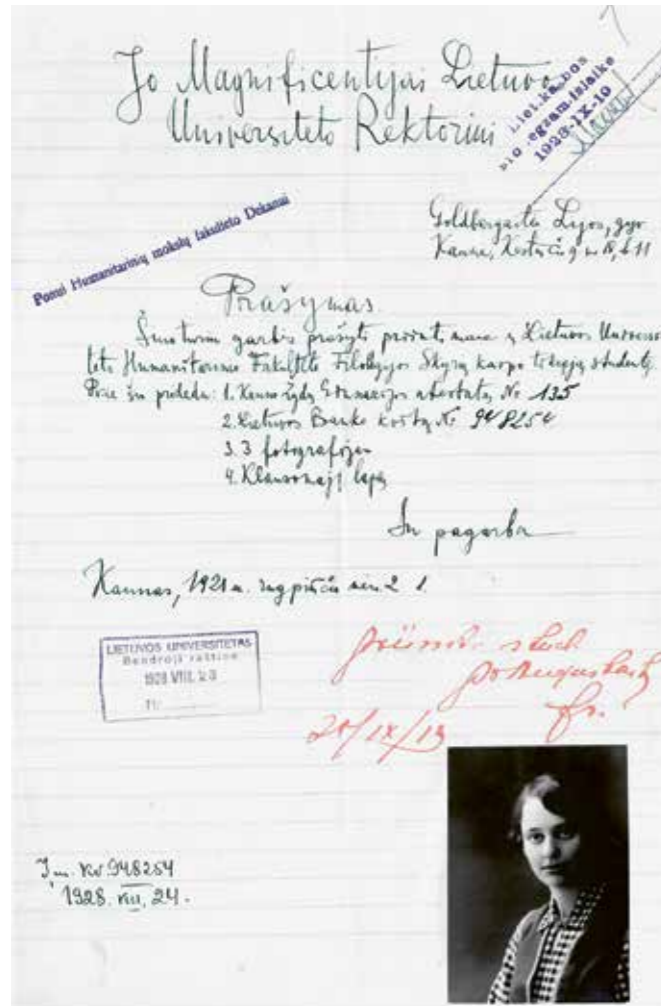 Jo Magnificencijai Lietuvos
Universiteto Rektoriui
Liet. kalbos
egzam. išlaikė
1928-IX-19
Ponui Humanitarinių mokslų fakulteto Dekanui
Goldbergaitės Lėjos, gyv.
Kaune,
Prašymas.
Šiuo turiu garbės prašyti priimti mane į Lietuvos Universi-
teto Humanitarinio Fakulteto Filologijos Skyrių kaipo tikrąją studentę.
Prie šio pridedu: 1. Kauno Žydų Gimnazijos atestatą No 135
2. Lietuvos Banko kvitą No 948254
3. 3 fotografijas
4. Klausomąjį lapą
Su pagarba
Kaunas, 1928 m. rugpiučio mėn. 2
LIETUVOS UNIVERSITETAS
Bendroji raštinė
1928 VIII. 23
Nr.
Im. kv. 948254
1928. VIII. 24.